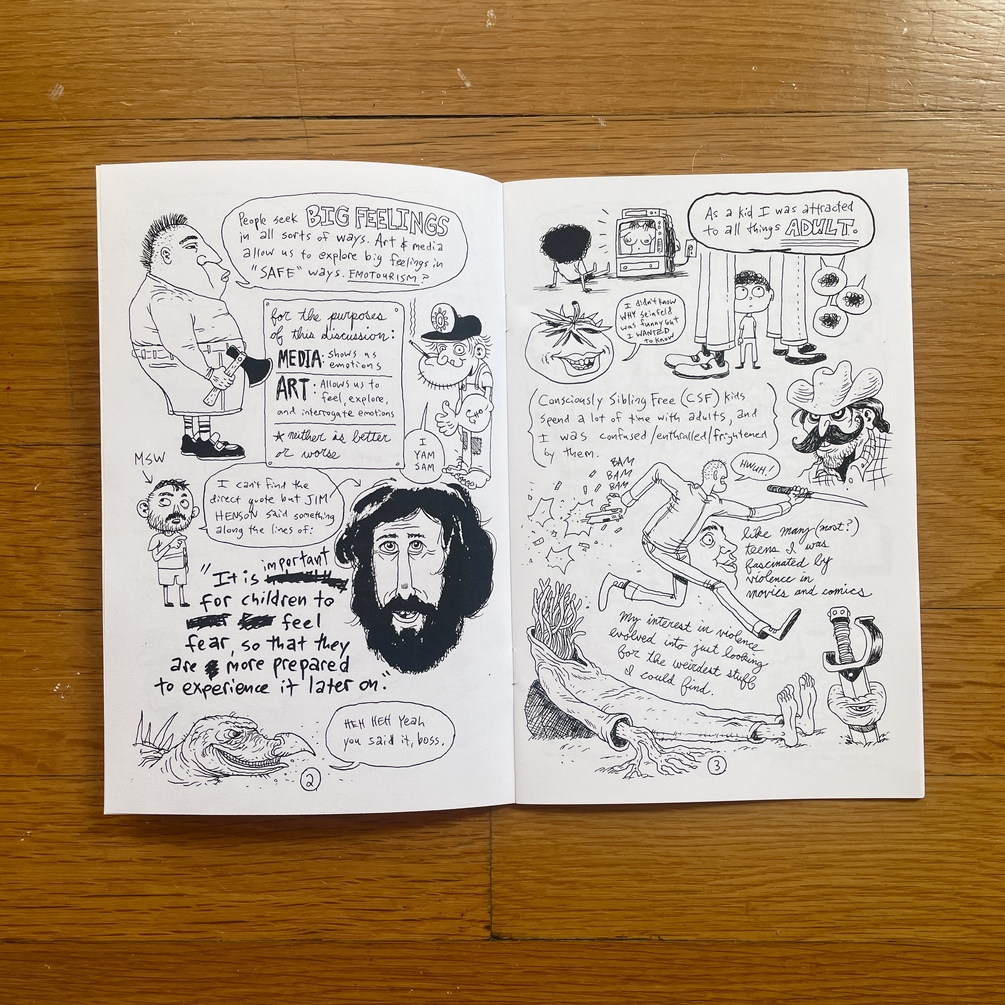 People seek BIG FEELINGS
in all sorts of ways. Art & media
allow us to explore big feelings in
"SAFE" ways. EMOTOURISM?
for the purposes
of this discussion:
MEDIA: shows us
emotions
ART: Allows us to
feel, explore,
and interrogate emotions
★ neither is better
or worse
I
YAM
SAM
MSW
I can't find the
direct quote but JIM
HENSON said something
along the lines of:
"It is important
for children to
feel
fear, so that they
are more prepared
to experience it later on."
HEH HEH Yeah
you said it, boss.
2
As a kid I was attracted
to all things ADULT.
I didn't know
WHY Seinfeld
was funny but
I WANTED
to know
Consciously Sibling Free (CSF) kids
spend a lot of time with adults, and
I was confused/enthralled/frightened
by them.
BAM
BAM
BAM
HWUH!
like many (most?)
teens I was
fascinated by
violence in
movies and comics
My interest in violence
evolved into just looking
for the weirdest stuff
I could find.
3